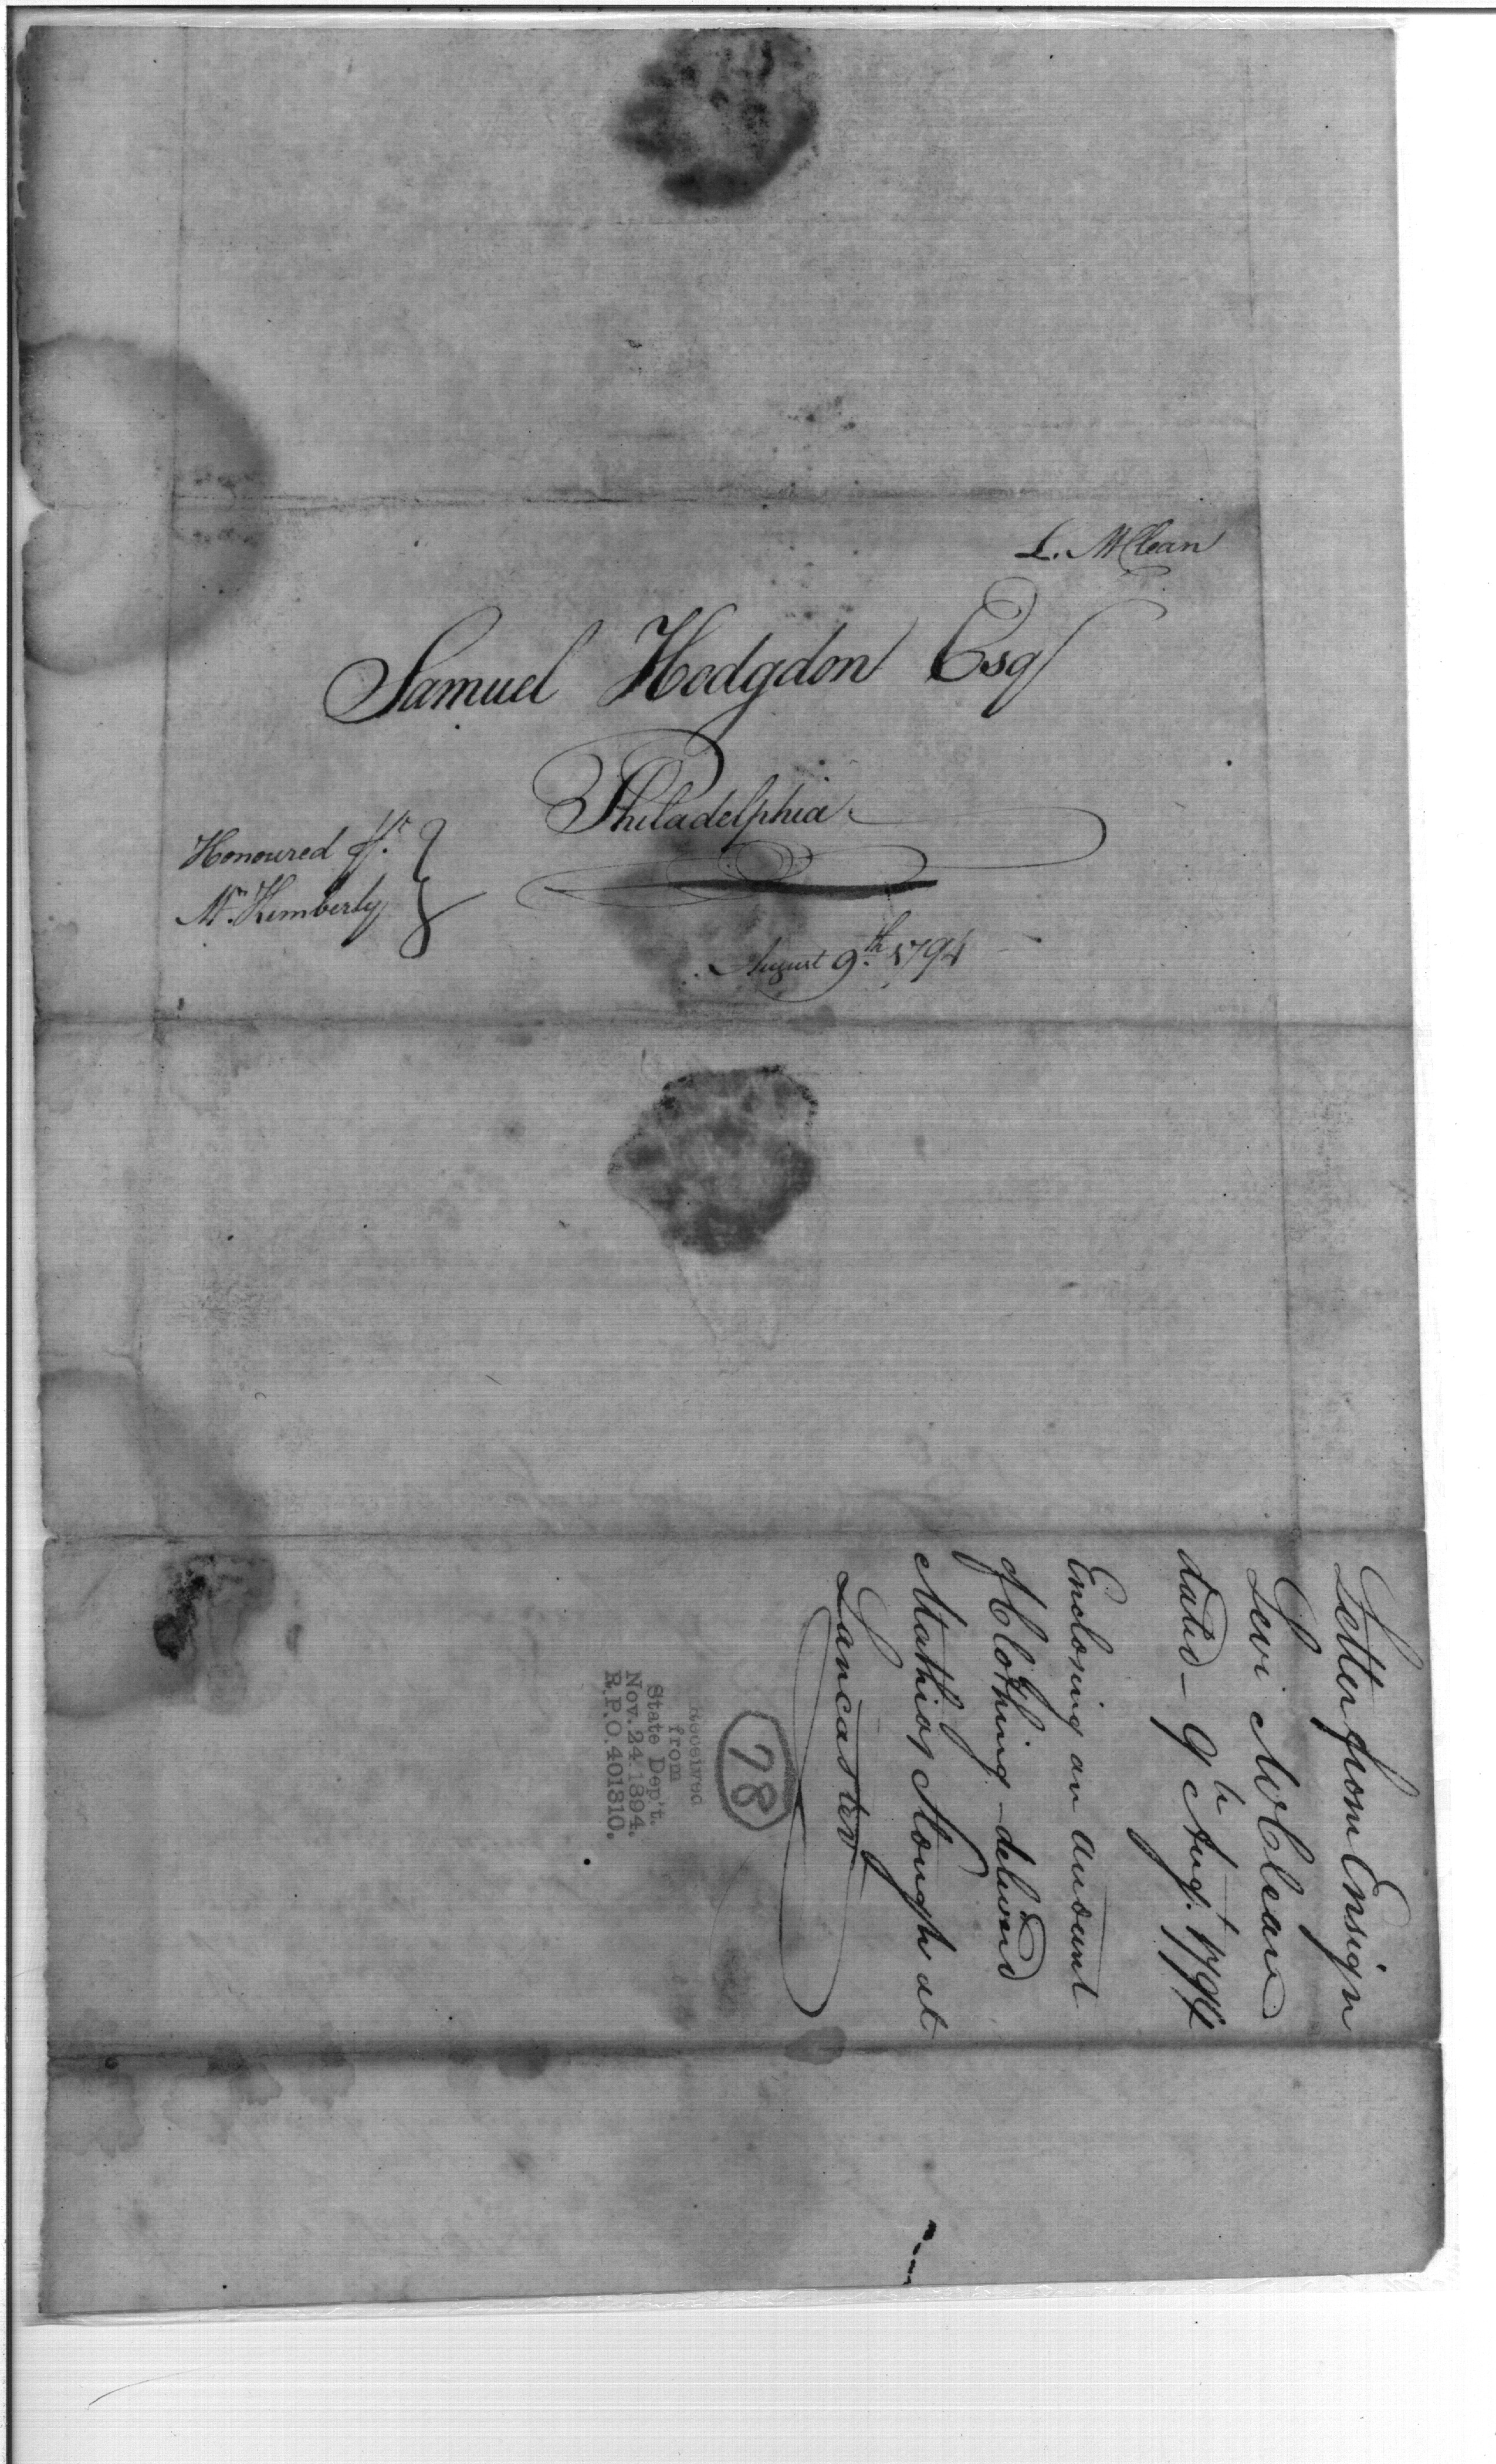 L. McClean
Samuel Hodgdon Esqr
Philadelphia
Honoured pr.
Mr. Kimberly
August 9th. 1794
Letter from Ensign
Levi McClean
dated - 9th Augt. 1794
Enclosing an amount
of Clothing - deliverd
Mathias Slough at
Lancaster
78
Received
from
State Dep't.
Nov. 24. 1894.
R.P.O. 401310.